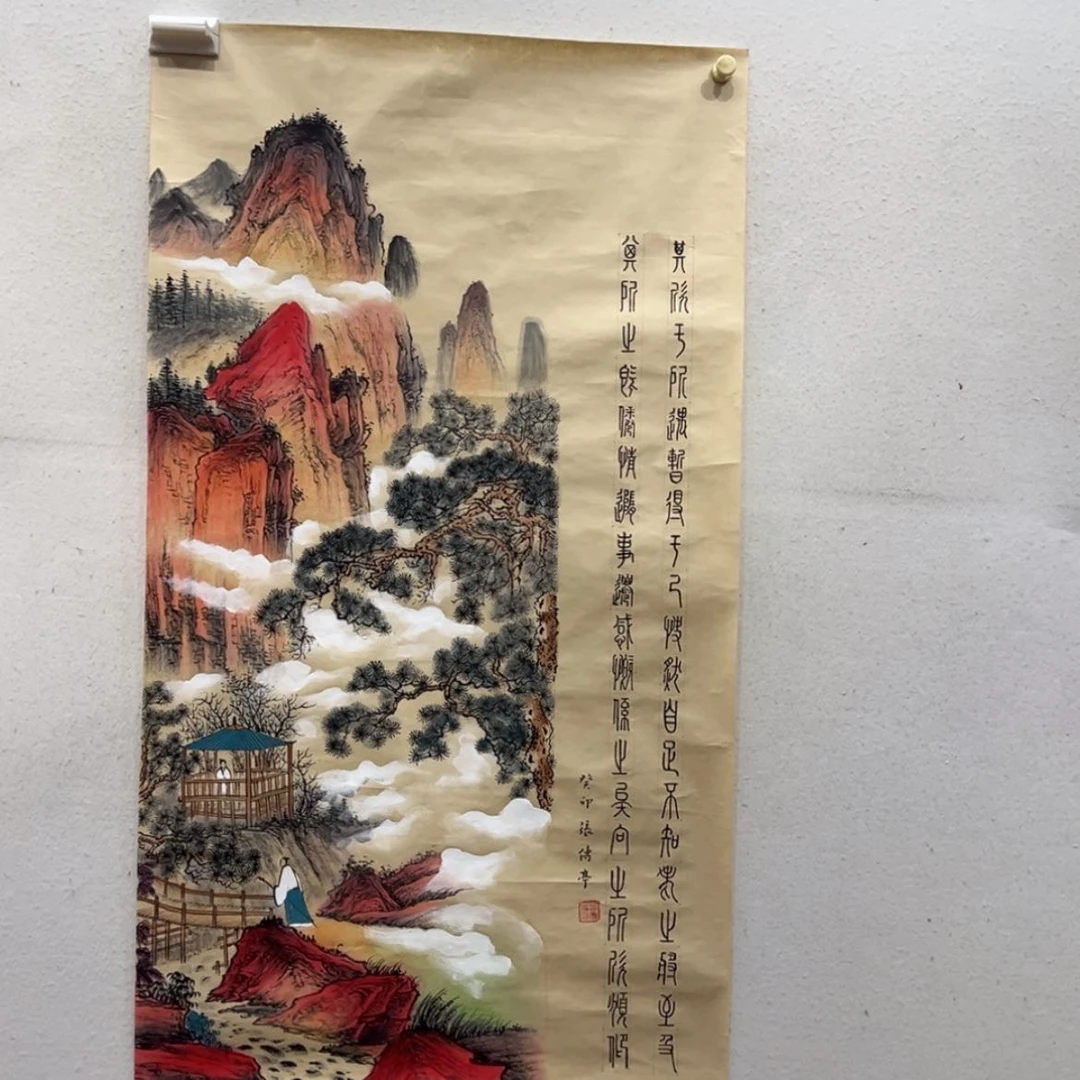 其欣于所遇暫得于己快然自足不知老之將至及
其所之既倦情隨事遷感慨係之矣向之所欣頫仰
癸卯 張亭